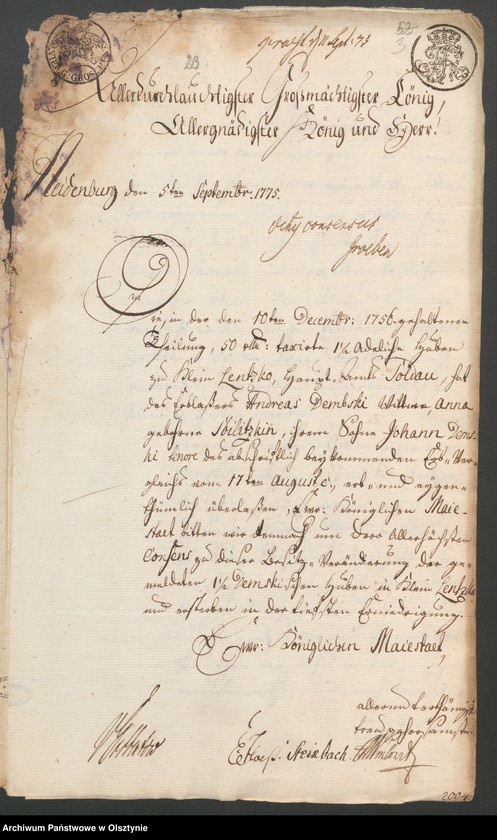 53
3
28
Allerdurchlauchtigster Großmächtigster König,
Allergnädigster König und Herr!
Neidenburg den 5ten Septembr: 1775.
consensus
Groeben
Die, in der den 10ten Decembr: 1756. gehaltenen
Theilung, 50 rtl: taxirte 1½ Adeliche Huben
zu Klein Lentzko, Haupt-Amts Soldau, hat
des Erblassers Andreas Dembski Wittwe, Anna
gebohrne, ihrem Sohne Johann Dems-
ki inhalts des abschriftlich beykommenden Erb-Ver-
gleichs vom 17ten August c:, erb- und eygen-
thümlich überlaßen, Ewr: Königlichen Maie-
staet bitten wir demnach um Dero Allerhöchsten
Consens zu dieser Besitz-Veränderung der ge-
meldeten 1½ Demskischen Huben in Klein Lentzko
und ersterben in der tiefsten Erniedrigung.
Ewr: Königlichen Maiestaet,
allerunterthänigst
treu gehorsamste
Steinbach
2004.
Archiwum Państwowe w Olsztynie